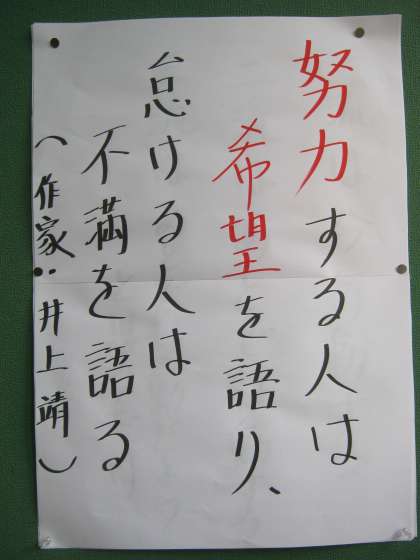 努力する人は
希望を語り、
怠ける人は
不満を語る
（作家・井上靖）